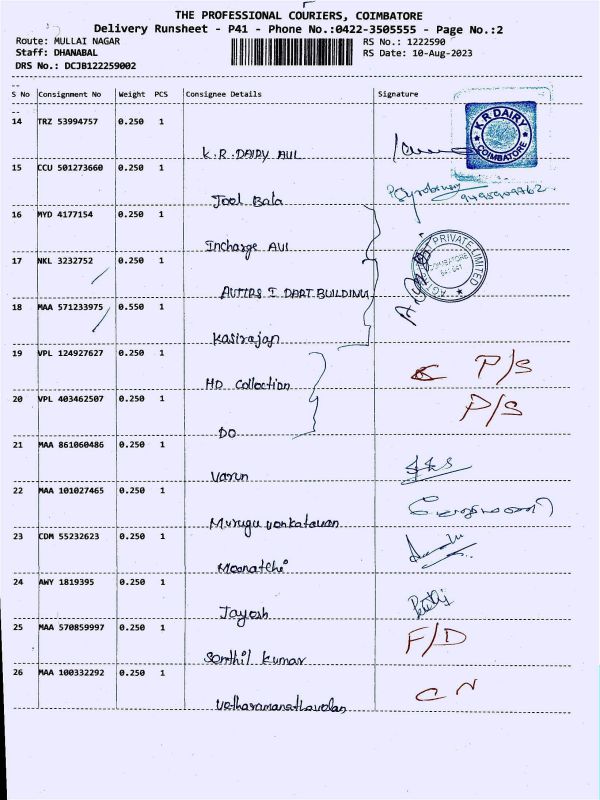 THE PROFESSIONAL COURIERS, COIMBATORE
Delivery Runsheet - P41 - Phone No.:0422-3505555 - Page No.:2
Route: MULLAI NAGAR RS No.: 1222590
Staff: DHANABAL RS Date: 10-Aug-2023
DRS No.: DCJB122259002
S No Consignment No Weight PCS Consignee Details Signature
14 TRZ 53994757 0.250 1
K.R.DAIRY AVL
K.R.DAIRY
COIMBATORE
15 CCU 501273660 0.250 1
Joel Bala
16 MYD 4177154 0.250 1
Incharge AVL
17 NKL 3232752 0.250 1
PRIVATE LIMITED
COIMBATORE
18 MAA 571233975 0.550 1
Kasirajan
19 VPL 124927627 0.250 1
HD Collection P/S
20 VPL 403462507 0.250 1
DO P/S
21 MAA 861060486 0.250 1
Varun
22 MAA 101027465 0.250 1
Murugu vonkatavan
23 CDM 55232623 0.250 1
Moonatchi
24 AWY 1819395 0.250 1
Jayesh
25 MAA 570859997 0.250 1
Sonthil Kumar F/D
26 MAA 100332292 0.250 1
CN